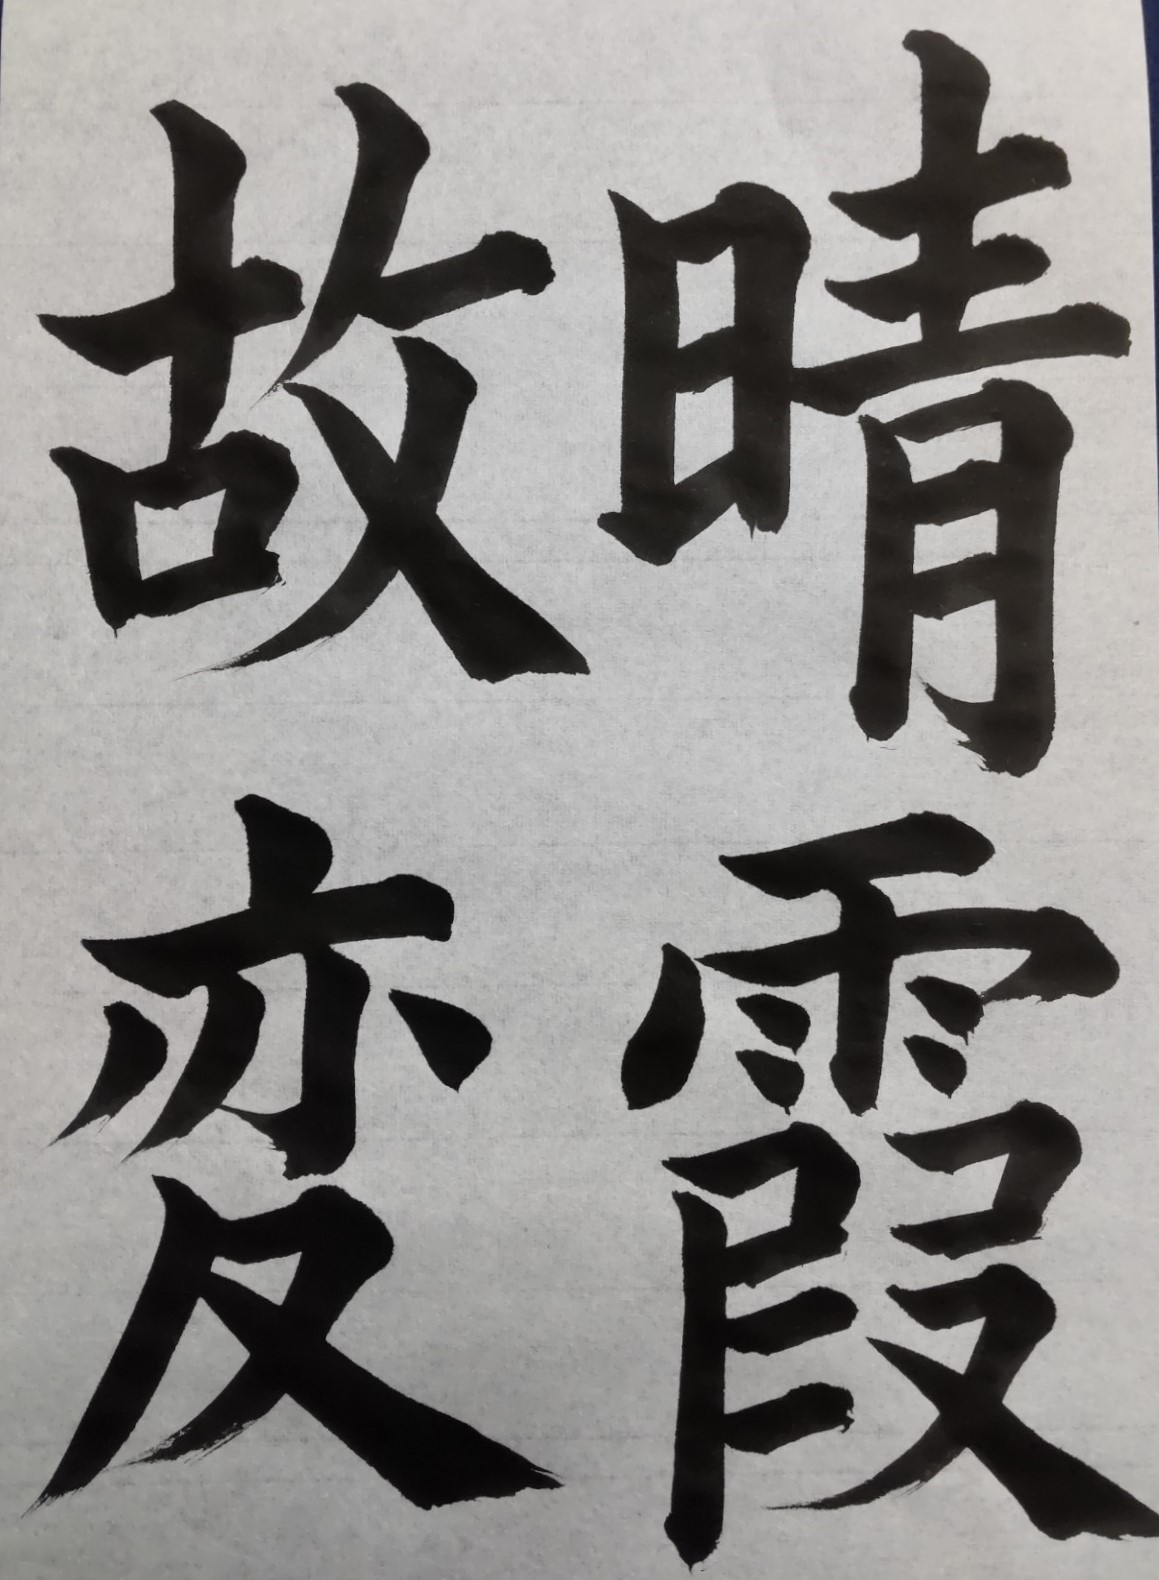 晴霞
故変